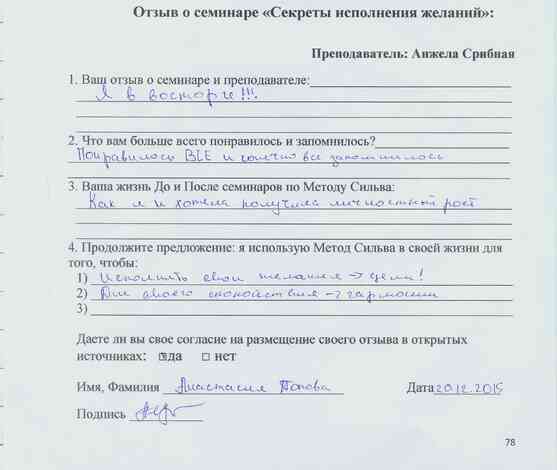 Отзыв о семинаре «Секреты исполнения желаний»:
Преподаватель: Анжела Срибная
1. Ваш отзыв о семинаре и преподавателе:
Я в восторге!!!
2. Что вам больше всего понравилось и запомнилось?
Понравилось ВСЕ и конечно все запомнилось
3. Ваша жизнь До и После семинаров по Методу Сильва:
Как я и хотела получила личностный рост
4. Продолжите предложение: я использую Метод Сильва в своей жизни для
того, чтобы:
1) Исполнить свои желания → цели!
2) Для своего спокойствия → гармонии
3)
Даете ли вы свое согласие на размещение своего отзыва в открытых
источниках: да нет
Имя, Фамилия Анастасия Попова Дата 20.12.2015
Подпись
78